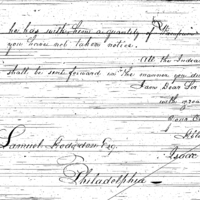 he has with him a quantity of
you have not taken notice.
All the Indea
shall be sent forward in the manner you de
I am Dear Sir
with gre
Your O
Samuel Hodgdon Esq.
Isaac
Philadelphia